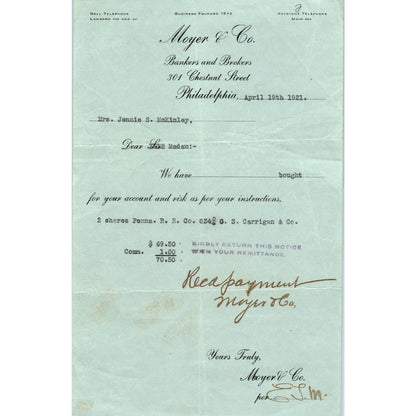 BELL TELEPHONE
LOMBARD
BUSINESS FOUNDED
KEYSTONE TELEPHONE
MAIN
Moyer & Co.
Bankers and Brokers
301 Chestnut Street
Philadelphia, April 19th 1921.
Mrs. Jennie S. McKinley,
Dear Madam:-
We have bought
for your account and risk as per your instructions,
2 shares Penna. R. R. Co. @34¾ G. S. Carrigan & Co.
$ 69.50
Comm. 1.00
70.50
KINDLY RETURN THIS NOTICE
WHEN YOUR REMITTANCE.
Recd payment
Moyer & Co.
Yours Truly,
Moyer & Co.
per E.T.M.